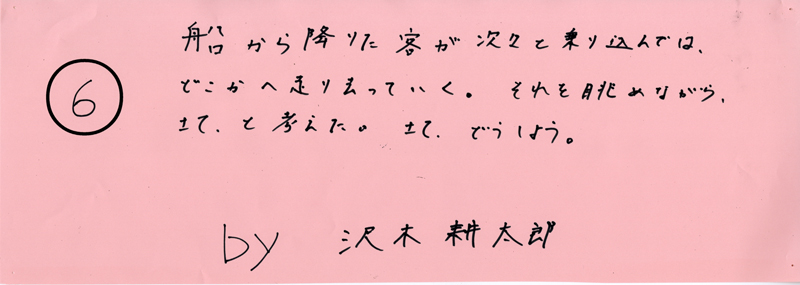 ⑥
船から降りた客が次々と乗り込んでは、
どこかへ走り去っていく。それを眺めながら、
さて、と考えた。さて、どうしよう。
by 沢木耕太郎